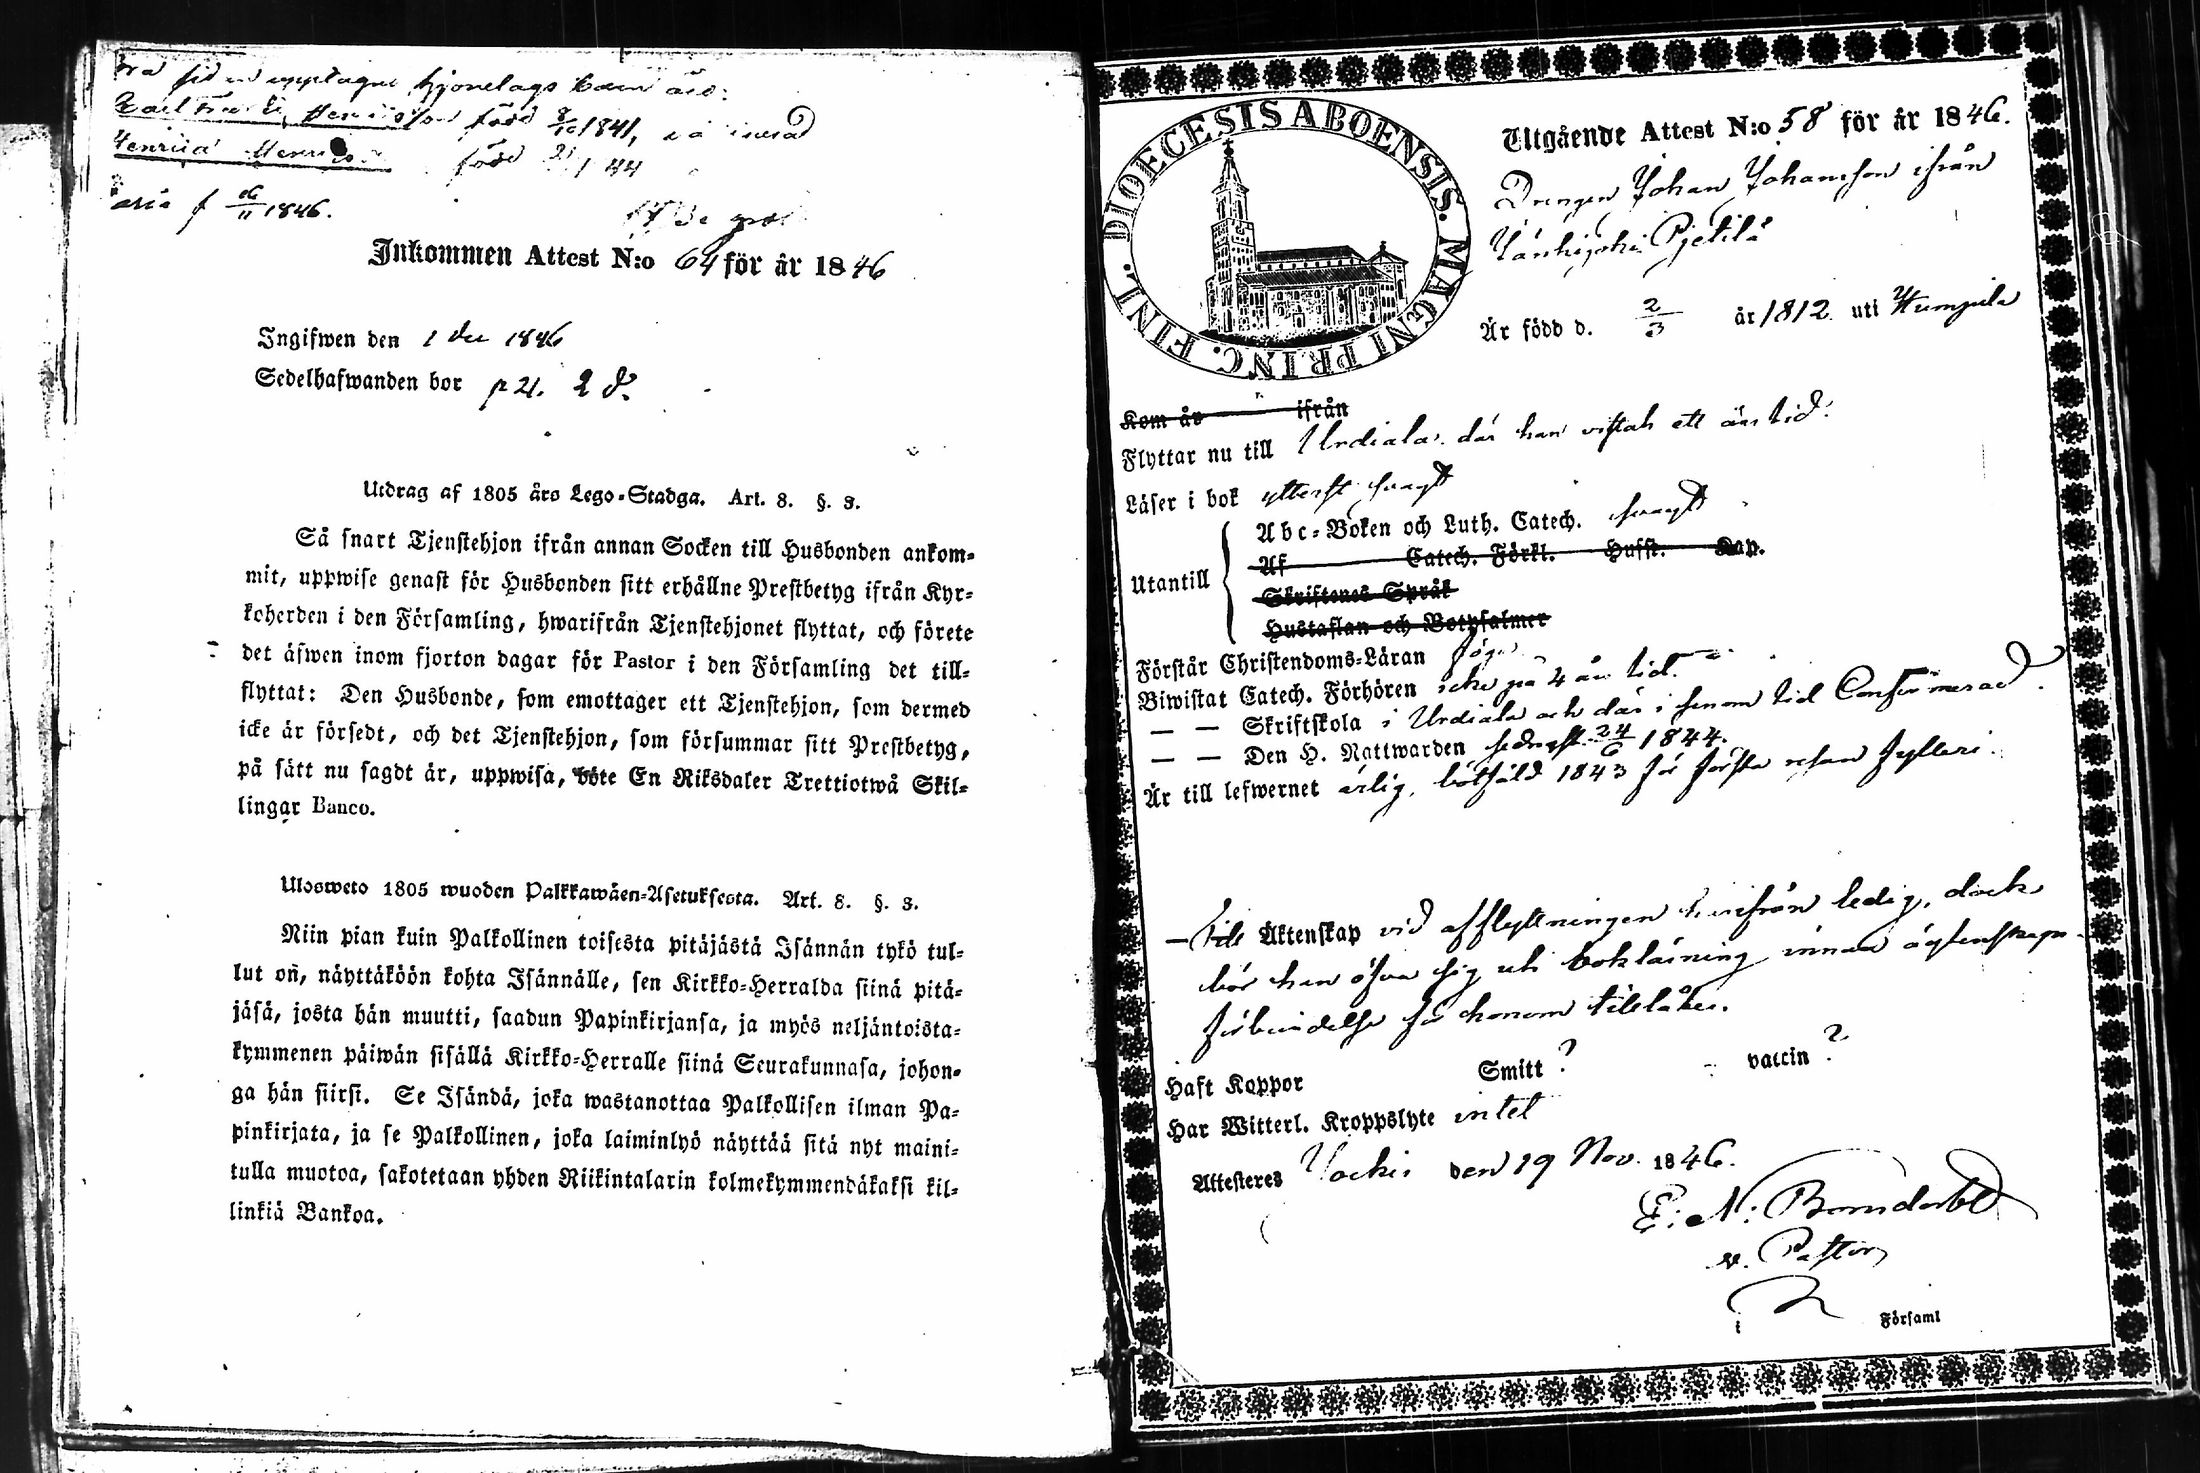 hjonelags barn äro:
Henriksson född 8/10 1841,
född 21/1 44
f 26/11 1846.
Inkommen Attest N:o 64 för år 1846
Ingifwen den 1 Dec 1846
Sedelhafwanden bor p 21.
Utdrag af 1805 års Lego-Stadga. Art. 8. §. 3.
Så snart Tjenstehjon ifrån annan Socken till Husbonden ankom-
mit, uppwise genast för Husbonden sitt erhållne Prestbetyg ifrån Kyr-
koherden i den Församling, hwarifrån Tjenstehjonet flyttat, och förete
det äfwen inom fjorton dagar för Pastor i den Församling det till-
flyttat: Den Husbonde, som emottager ett Tjenstehjon, som dermed
icke är försedt, och det Tjenstehjon, som försummar sitt Prestbetyg,
på sätt nu sagdt är, uppwisa, böte En Riksdaler Trettiotwå Skil-
lingar Banco.
Ulosweto 1805 wuoden Palkkawäen-Asetuksesta. Art. 8. §. 3.
Niin pian kuin Palkollinen toisesta pitäjästä Isännän tykö tul-
lut on̄, näyttäköön kohta Isännälle, sen Kirkko-Herralda siinä pitä-
jäsä, josta hän muutti, saadun Papinkirjansa, ja myös neljäntoista-
kymmenen päiwän sisällä Kirkko-Herralle siinä Seurakunnasa, johon-
ga hän siirsi. Se Isändä, joka wastanottaa Palkollisen ilman Pa-
pinkirjata, ja se Palkollinen, joka laiminlyö näyttää sitä nyt maini-
tulla muotoa, sakotetaan yhden Riikintalarin kolmekymmendäkaksi kil-
linkiä Bankoa.
DIOECESIS ABOENSIS. MAGNI PRINC. FINL.
Utgående Attest N:o 58 för år 1846.
Drengen Johan Johansson ifrån
Pjetilä
Är född d. 2/3 år 1812 uti Humpila
Kom år ifrån
Flyttar nu till Urdiala, där han vistats ett års tid.
Läser i bok ytterst svagt
Abc-Boken och Luth. Catech. svagt
Af Catech. Förkl. Husst. Kap.
Utantill
Skriftenes Språk
Hustaflan och Botpsalmer
Förstår Christendoms-Läran föga
Biwistat Catech. Förhören icke på 4 års tid.
— — Skriftskola i Urdiala och där i senom tid Confirmerad.
— — Den H. Nattwarden sednast 24/6 1844.
Är till lefwernet ärlig, bötfäld 1843 för första resan fylleri.
— Till Äktenskap vid afflyttningen härifrån ledig, dock
bör han öfva sig uti bokläsning innan ägtenskaps-
förbindelse för honom tillåtes.
Haft Koppor Smitt ? vaccin ?
Har Witterl. Kroppslyte intet
Attesteres Jockis den 19 Nov. 1846.
E: N:
v. Pastor
i Församl